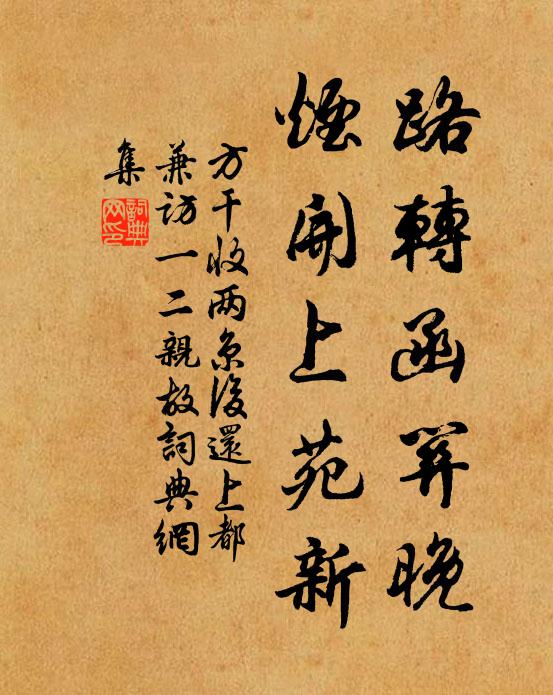 路轉函關晚
煙開上苑新
方干收两京後還上都
兼訪一二親故詞典網
集
詞典
网印